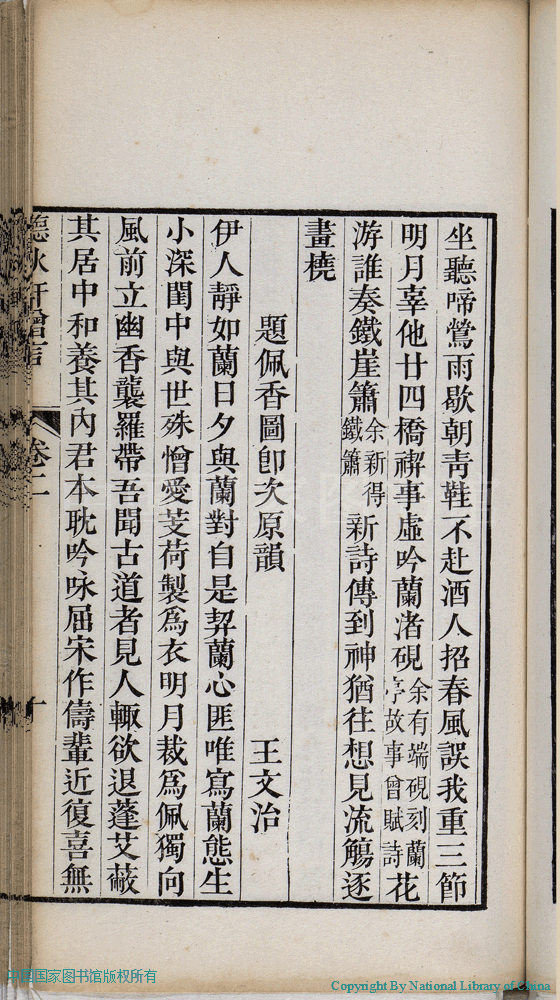 坐聽啼鶯雨歇朝青鞵不赴酒人招春風誤我重三節
明月辜他廿四橋禊事虛吟蘭渚硯余有端硯刻蘭亭故事曾賦詩花
游誰奏鐵崖簫余新得鐵簫新詩傳到神猶往想見流觴逐
畫橈
題佩香圖卽次原韻 王文治
伊人靜如蘭日夕與蘭對自是契蘭心匪唯寫蘭態生
小深閨中與世殊憎愛芰荷製爲衣明月裁爲佩獨向
風前立幽香襲羅帶吾聞古道者見人輙欲退蓬艾蔽
其居中和養其內君本耽吟咏屈宋作儔輩近復喜無
聽秋軒贈言 卷二 十
中国国家图书馆版权所有
Copyright By National Library of China